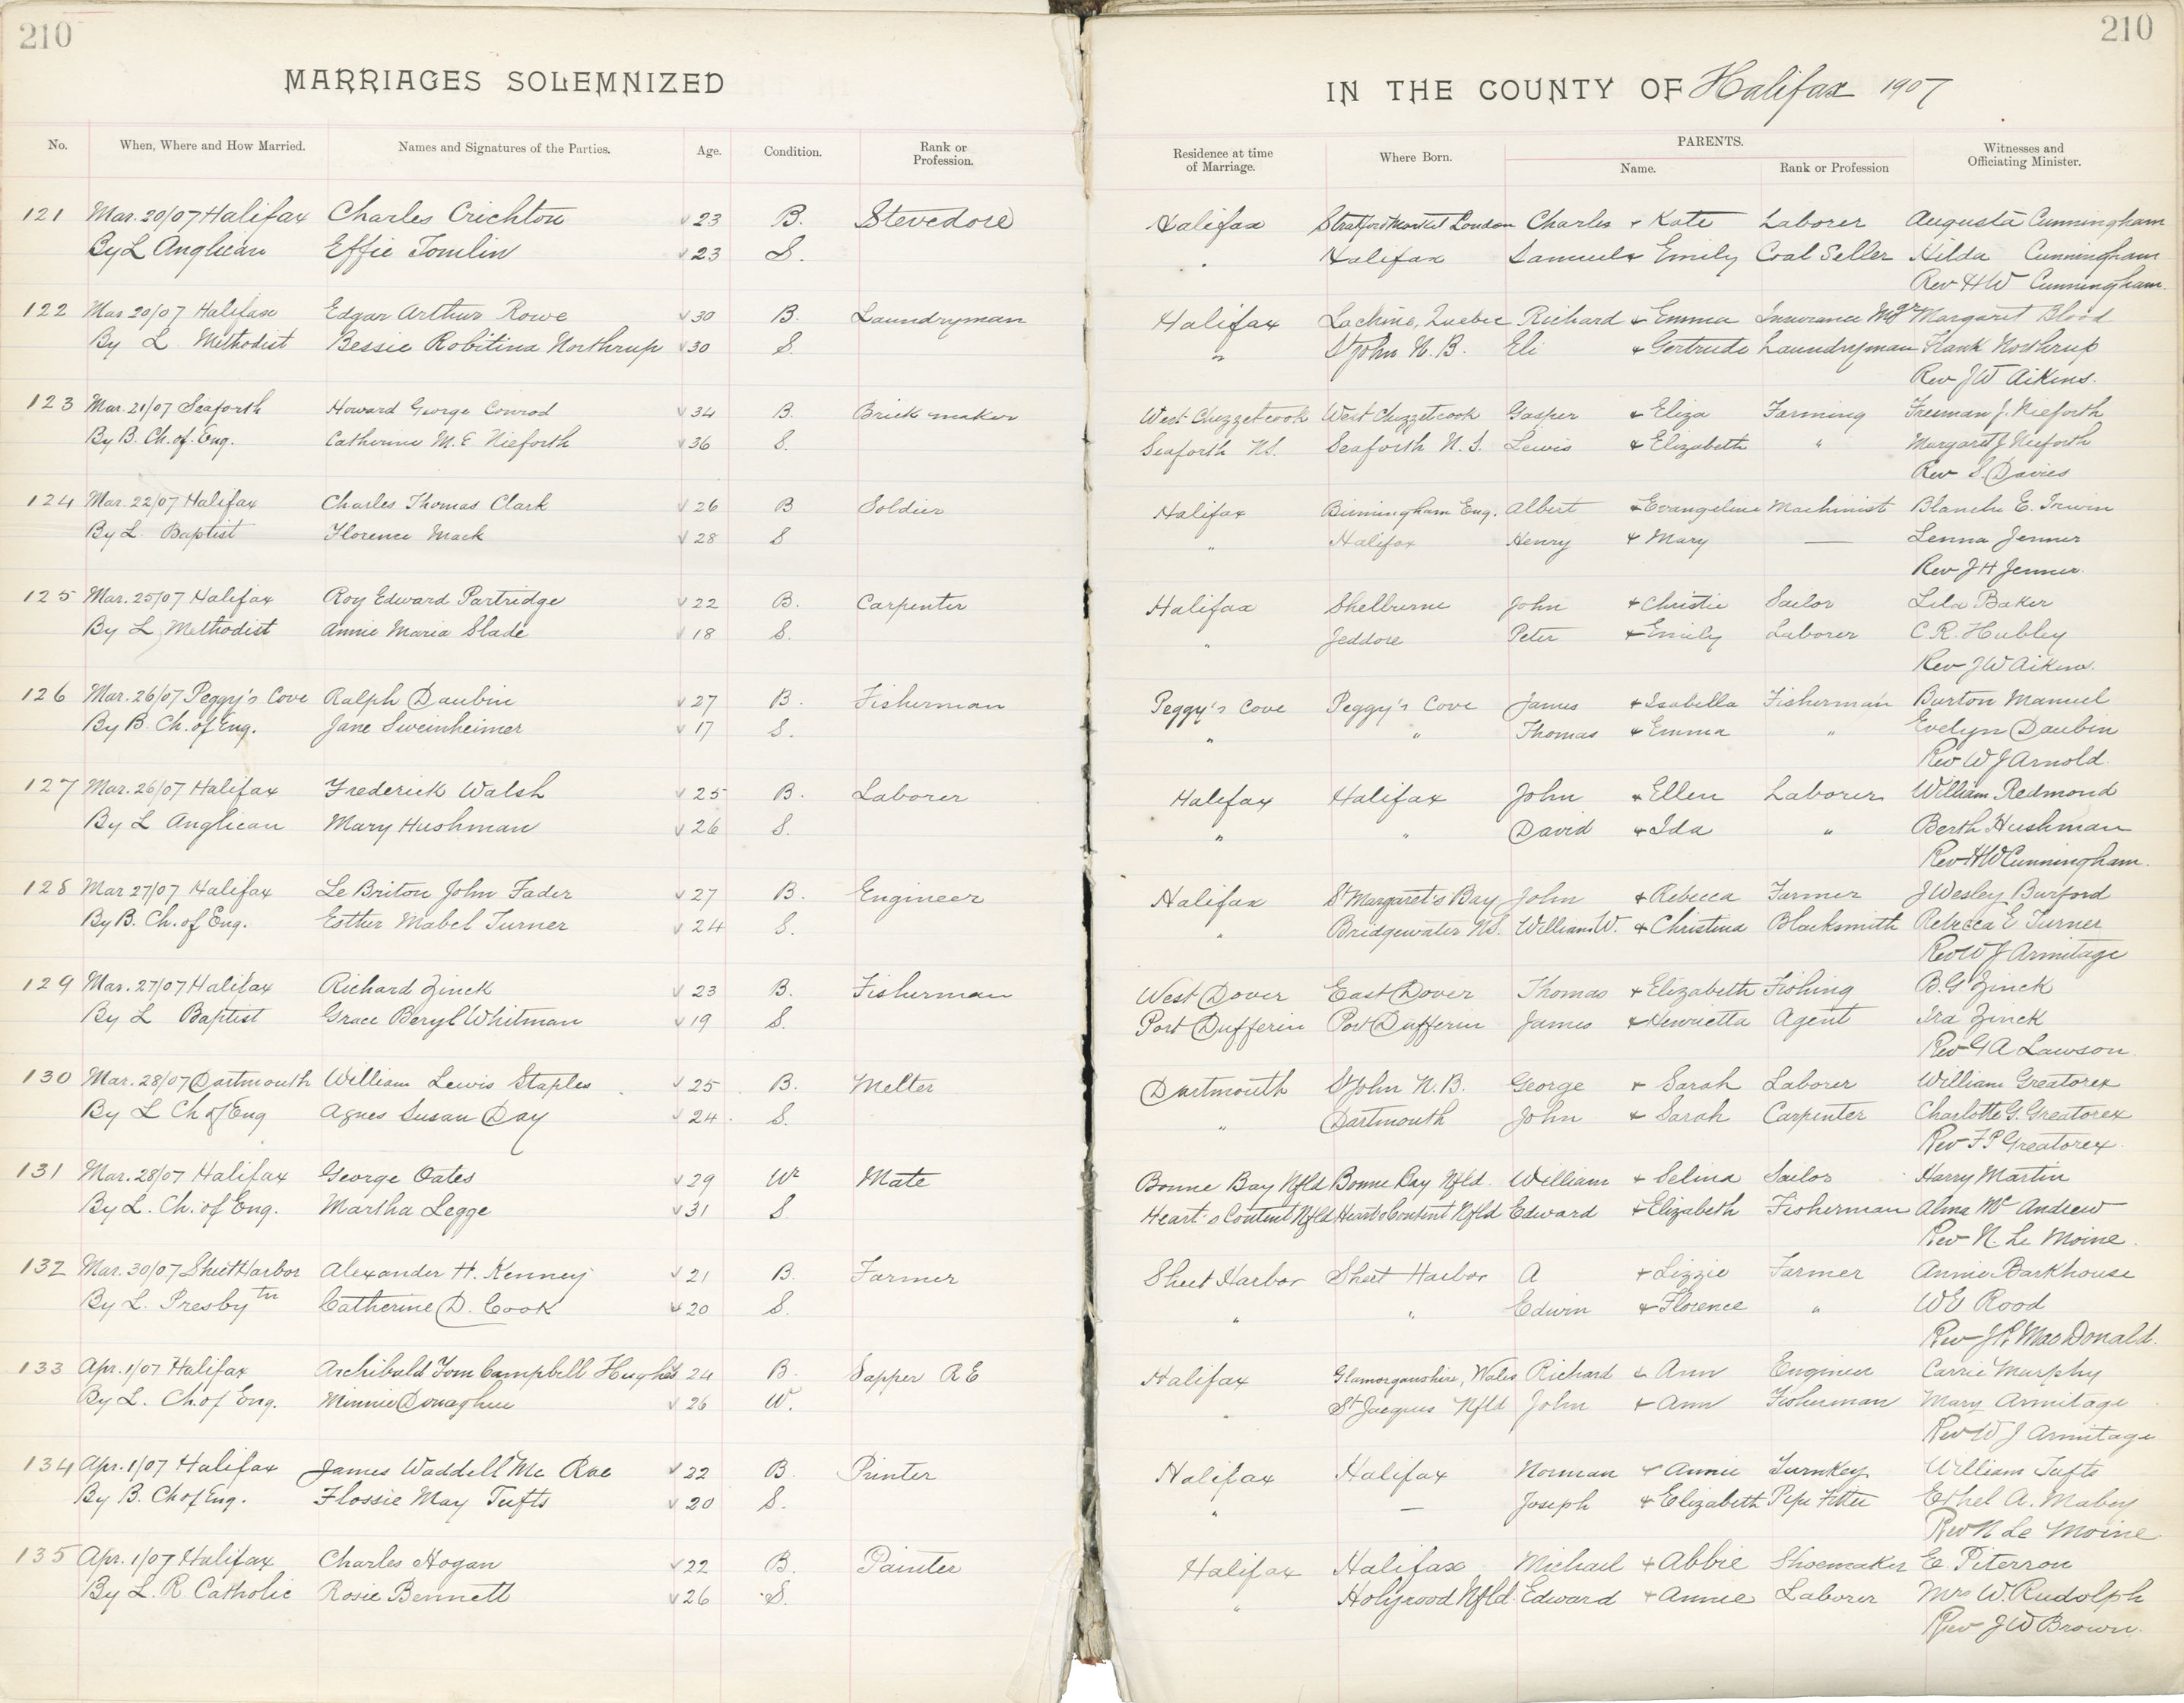 210
210
MARRIAGES SOLEMNIZED
IN THE COUNTY OF Halifax 1907
No. When, Where and How Married. Names and Signatures of the Parties. Age. Condition. Rank or Profession. Residence at time of Marriage. Where Born. PARENTS. Name. Rank or Profession Witnesses and Officiating Minister.
121 Mar. 20/07 Halifax Charles Crichton 23 B. Stevedore Halifax Stratford Market London Charles + Kate Laborer Augusta Cunningham
By L Anglican Effie Tomlin 23 S. " Halifax Samuel + Emily Coal Seller Hilda Cunningham
Rev HW Cunningham
122 Mar 20/07 Halifax Edgar Arthur Rowe 30 B. Laundryman Halifax Lachine, Quebec Richard + Emma Insurance Mgr Margaret Blood
By L Methodist Bessie Robitina Northrup 30 S. " St John N.B. Eli + Gertrude Laundryman Frank Northrup
Rev JW Aikens.
123 Mar. 21/07 Seaforth Howard George Conrod 34 B. Brick maker West Chezzetcook West Chezzetcook Gasper + Eliza Farming Freeman J. Nieforth
By B. Ch. of. Eng. Catherine M. E Nieforth 36 S. Seaforth NS. Seaforth N.S. Lewis + Elizabeth " Margaret J Nieforth
Rev S. Davies
124 Mar. 22/07 Halifax Charles Thomas Clark 26 B Soldier Halifax Birmingham Eng. Albert + Evangeline Machinist Blanche E. Irwin
By L. Baptist Florence Mack 28 S " Halifax Henry + Mary — Lenna Jenner
Rev J H Jenner.
125 Mar. 25/07 Halifax Roy Edward Partridge 22 B. Carpenter Halifax Shelburne John + Christie Sailor Lila Baker
By L, Methodist Annie Maria Slade 18 S. " Jeddore Peter + Emily Laborer C.R. Hubley
Rev JW Aikens.
126 Mar. 26/07 Peggy's Cove Ralph Daubin 27 B. Fisherman Peggy's Cove Peggy's Cove James + Isabella Fisherman Burton Manuel
By B. Ch. of Eng. Jane Sweinheimer 17 S. " " Thomas + Emma " Evelyn Daubin
Rev W J Arnold.
127 Mar. 26/07 Halifax Frederick Walsh 25 B. Laborer Halifax Halifax John + Ellen Laborer William Redmond
By L Anglican Mary Hushman 26 S. " " David + Ida " Berth Hushman
Rev HW Cunningham.
128 Mar 27/07 Halifax Le Briton John Fader 27 B. Engineer Halifax St Margaret's Bay John + Rebecca Farmer J Wesley Burford
By B. Ch. of Eng. Esther Mabel Turner 24 S. " Bridgewater NS. William W. + Christina Blacksmith Rebecca E Turner
Rev W J Armitage
129 Mar. 27/07 Halifax Richard Zinck 23 B. Fisherman West Dover East Dover Thomas + Elizabeth Fishing B.G Zinck
By L Baptist Grace Beryl Whitman 19 S. Port Dufferin Port Dufferin James + Henrietta Agent Ira Zinck
Rev G A Lawson.
130 Mar. 28/07 Dartmouth William Lewis Staples 25 B. Melter Dartmouth St John N.B. George + Sarah Laborer William Greatorex
By L Ch of Eng Agnes Susan Day 24. S. " Dartmouth John + Sarah Carpenter Charlotte G. Greatorex
Rev F P Greatorex.
131 Mar. 28/07 Halifax George Oates 29 Wr Mate Bonne Bay Nfld Bonne Bay Nfld. William + Selina Sailor Harry Martin
By L. Ch. of Eng. Martha Legge 31 S Heart's Content Nfld Heart's Content Nfld Edward + Elizabeth Fisherman Alma Mc Andrew
Rev N. Le Moine.
132 Mar. 30/07 Sheet Harbor Alexander H. Kenney 21 B. Farmer Sheet Harbor Sheet Harbor A + Lizzie Farmer Annie Barkhouse
By L. Presbytn Catherine D. Cook 20 S. " " Edwin + Florence " WE Rood
Rev J.R. MacDonald.
133 Apr. 1/07 Halifax Archibald Tom Campbell Hughes 24 B. Sapper R E Halifax Glamorganshire, Wales Richard & Ann Engineer Carrie Murphy
By L. Ch. of Eng. Minnie Donaghue 26 W. " St Jacques Nfld John + Ann Fisherman Mary Armitage
Rev W J Armitage
134 Apr. 1/07 Halifax James Waddell Mc Rae 22 B. Printer Halifax Halifax Norman + Annie Turnkey William Tufts
By B. Ch of Eng. Flossie May Tufts 20 S. " — Joseph + Elizabeth Pipe Fitter Ethel A. Mabey
Rev N Le Moine
135 Apr. 1/07 Halifax Charles Hogan 22 B. Painter Halifax Halifax Michael + Abbie Shoemaker E. Peterson
By L. R Catholic Rosie Bennett 26 S. " Holyrood Nfld. Edward + Annie Laborer Mrs W. Rudolph
Rev J W Brown.